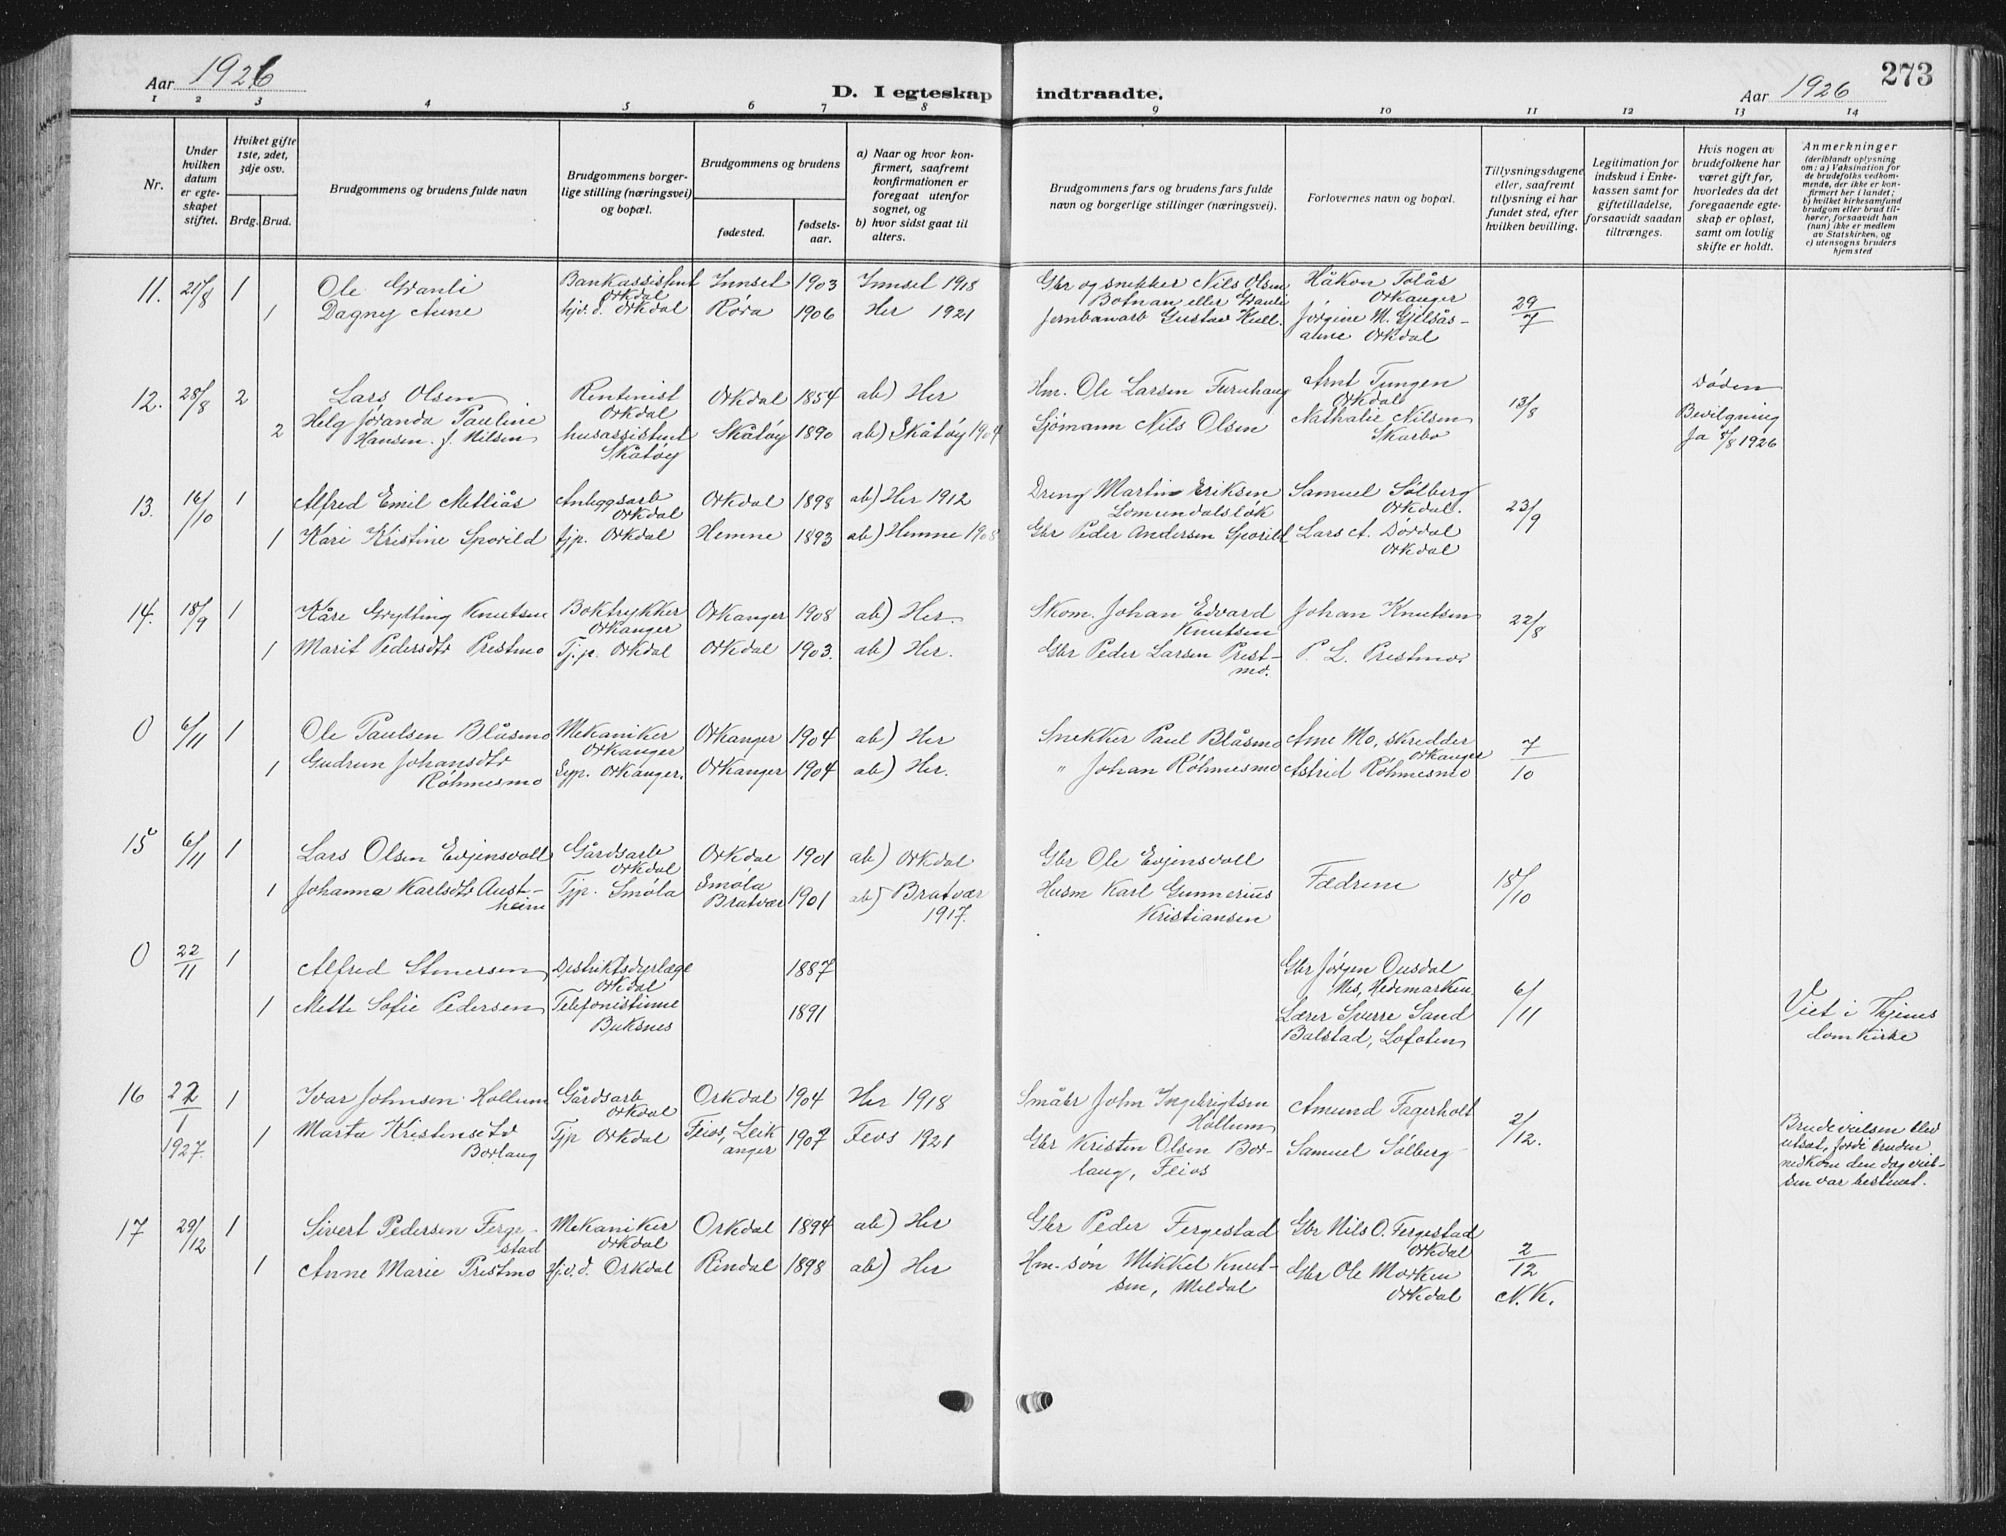 Aar 1926
D. I egteskap indtraadte.
Aar 1926
273
1 2 3 4 5 6 7 8 9 10 11 12 13 14
Nr.
Under hvilken datum er egteskapet stiftet.
Hviket gifte 1ste, 2det, 3dje osv.
Brdg. Brud.
Brudgommens og brudens fulde navn
Brudgommens borgerlige stilling (næringsvei) og bopæl.
Brudgommens og brudens
fødested.
fødselsaar.
a) Naar og hvor konfirmert, saafremt konfirmationen er foregaat utenfor sognet, og
b) hvor sidst gaat til alters.
Brudgommens fars og brudens fars fulde navn og borgerlige stillinger (næringsvei).
Forlovernes navn og bopæl.
Tillysningsdagene eller, saafremt tillysning ei har fundet sted, efter hvilken bevilling.
Legitimation for indskud i Enkekassen samt for giftetilladelse, forsaavidt saadan tiltrænges.
Hvis nogen av brudefolkene har været gift før, hvorledes da det foregaaende egteskap er opløst, samt om lovlig skifte er holdt.
Anmerkninger
(deriblandt oplysning om: a) Vaksination for de brudefolks vedkommende, der ikke er konfirmert her i landet; b) hvilket kirkesamfund brudgom eller brud tilhører, forsaavidt han (hun) ikke er medlem av Statskirken, og c) utensogns bruders hjemsted
11. 21/8 1 Ole Granli Bankassistent Orkdal Innset 1903 Innset 1918 Gbr og snekker Nils Olsen Botnan eller Granli Håkon Tolås Orkanger 29/7
1 Dagny Aune hjv. d. Orkdal Røra 1906 Her 1921 Jernbanarb Gustav Hell. Jørgine M. Gjelsåsaune Orkdal
12. 28/8 2 Lars Olsen Rentenist Orkdal Orkdal 1854 ab) Her Hm. Ole Larsen Furuhaug Arnt Tungen Orkdal 13/8 Døden
2 Helg Jøranda Pauline Hansen f. Nilsen husassistent Skåtøy Skåtøy 1890 ab) Skåtøy 1904 Sjömann Nils Olsen Nathalie Nilsen Skarbo Bevilgning Ja 5/8 1926
13. 16/10 1 Alfred Emil Metliås Anleggsarb Orkdal Orkdal 1898 ab) Her 1912 Dreng Martin Eriksen Lomundalslok Samuel Sölberg Orkdal. 23/9
1 Kari Kristine Sporild tjp. Orkdal Hemne 1893 ab) Hemne 1908 Gbr Peder Andersen Sporild Lars A. Dørdal Orkdal
14. 18/9 1 Kåre Grytting Knutsen Boktrykker Orkanger Orkanger 1908 ab) Her. Skom. Johan Edvard Knutsen Johan Knutsen 22/8
1 Marit Pedersdtr Prestmo Tj.p. Orkdal Orkdal 1903. ab) Her. Gbr Peder Larsen Prestmo. P. L. Prestmo.
0 6/11 1 Ole Paulsen Blåsmo Mekaniker Orkanger Orkanger 1904 ab) Her Snekker Paul Blåsmo Arne Mo, skredder Orkanger 7/10
1 Gudrun Johansdtr Röhmesmo Syp. Orkanger. Orkanger 1904 ab) Her. " Johan Röhmesmo Astrid Röhmesmo
15 6/11 1 Lars Olsen Evjensvoll Gårdsarb Orkdal Orkdal 1901 ab) Orkdal Gbr Ole Evjensvoll Fedrene 18/10
1 Johanna Karlsdtr Austheim Tjp. Smöla Smöla Bratvær 1901 ab) Bratvær 1917. Husm Karl Gunnerius Kristiansen
0 22/11 1 Alfred Distriktsdyrlæge Orkdal 1887 Gbr Jörgen Ousdal Nes, Hedemarken 6/11
1 Mette Sofie Pedersen Telefonistinne Buksnes 1891 Lærer Sverre Sand Balstad, Lofoten Viet i domkirke
16 22/1 1927 1 Ivar Johnsen Hollum Gårdsarb Orkdal Orkdal 1904 Her 1918 Småbr John Ingebrigtsen Hollum Amund Fagerholt 2/12.
1 Marta Kristensdtr Borlaug Tjp Orkdal Feios, Leikanger 1907 Feos 1921 Gbr Kristen Olsen Borlaug, Feios Samuel Sölberg Brudevielsen blev utsat, fordi bruden nedkom den dag vielsen var bestemt.
17 29/12 1 Sivert Pedersen Fergestad Mekaniker Orkdal Orkdal 1894 ab) Her Gbr Peder Fergestad Gbr Nils O. Fergestad Orkdal 2/12 N.K.
1 Anne Marie Prestmo Hj.v.d. Orkdal Rindal 1898 ab) Her Hm. søn Mikkel Knutsen, Meldal Gbr Ole Morken Orkdal